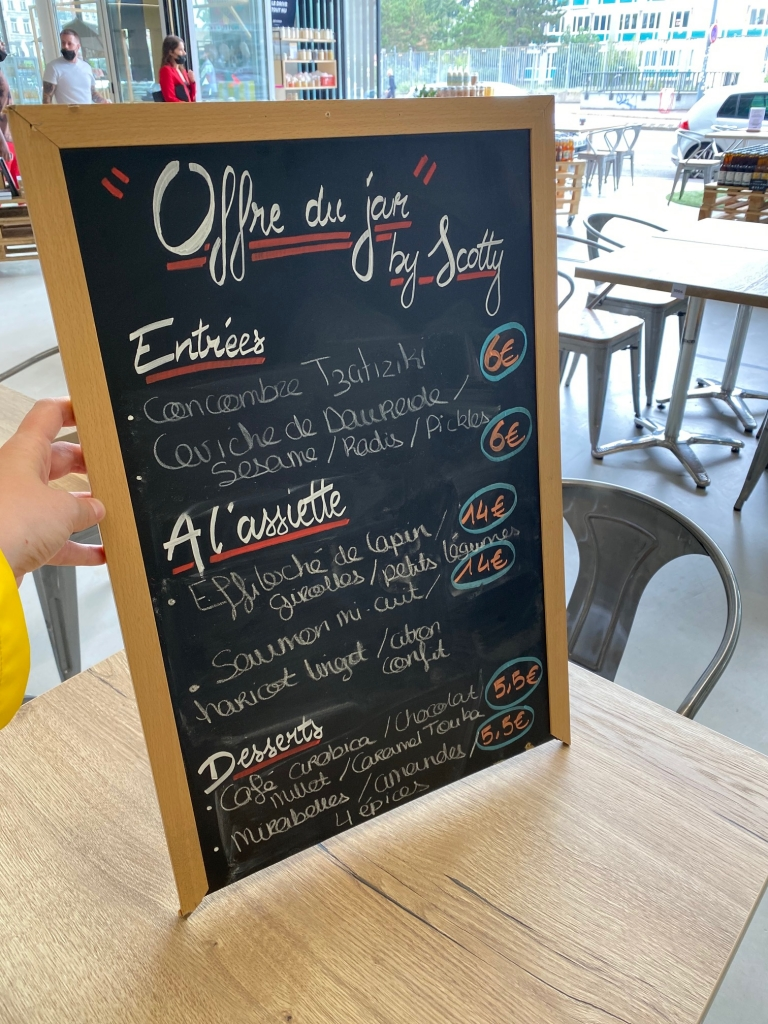 "Offre du jar"
by Scotty
Entrées
Concombre Tzatiziki 6€
Ceviche de Daurade /
Sesame / Radis / Pickles 6€
A l'assiette
Effiloché de lapin / 14€
girolles / petits légumes
Saumon mi-cuit / 14€
haricot lingot / citron
confit
Desserts
Café arabica / Chocolat / 5,5€
millot / Caramel Touba
Mirabelles / amandes / 5,5€
4 épices